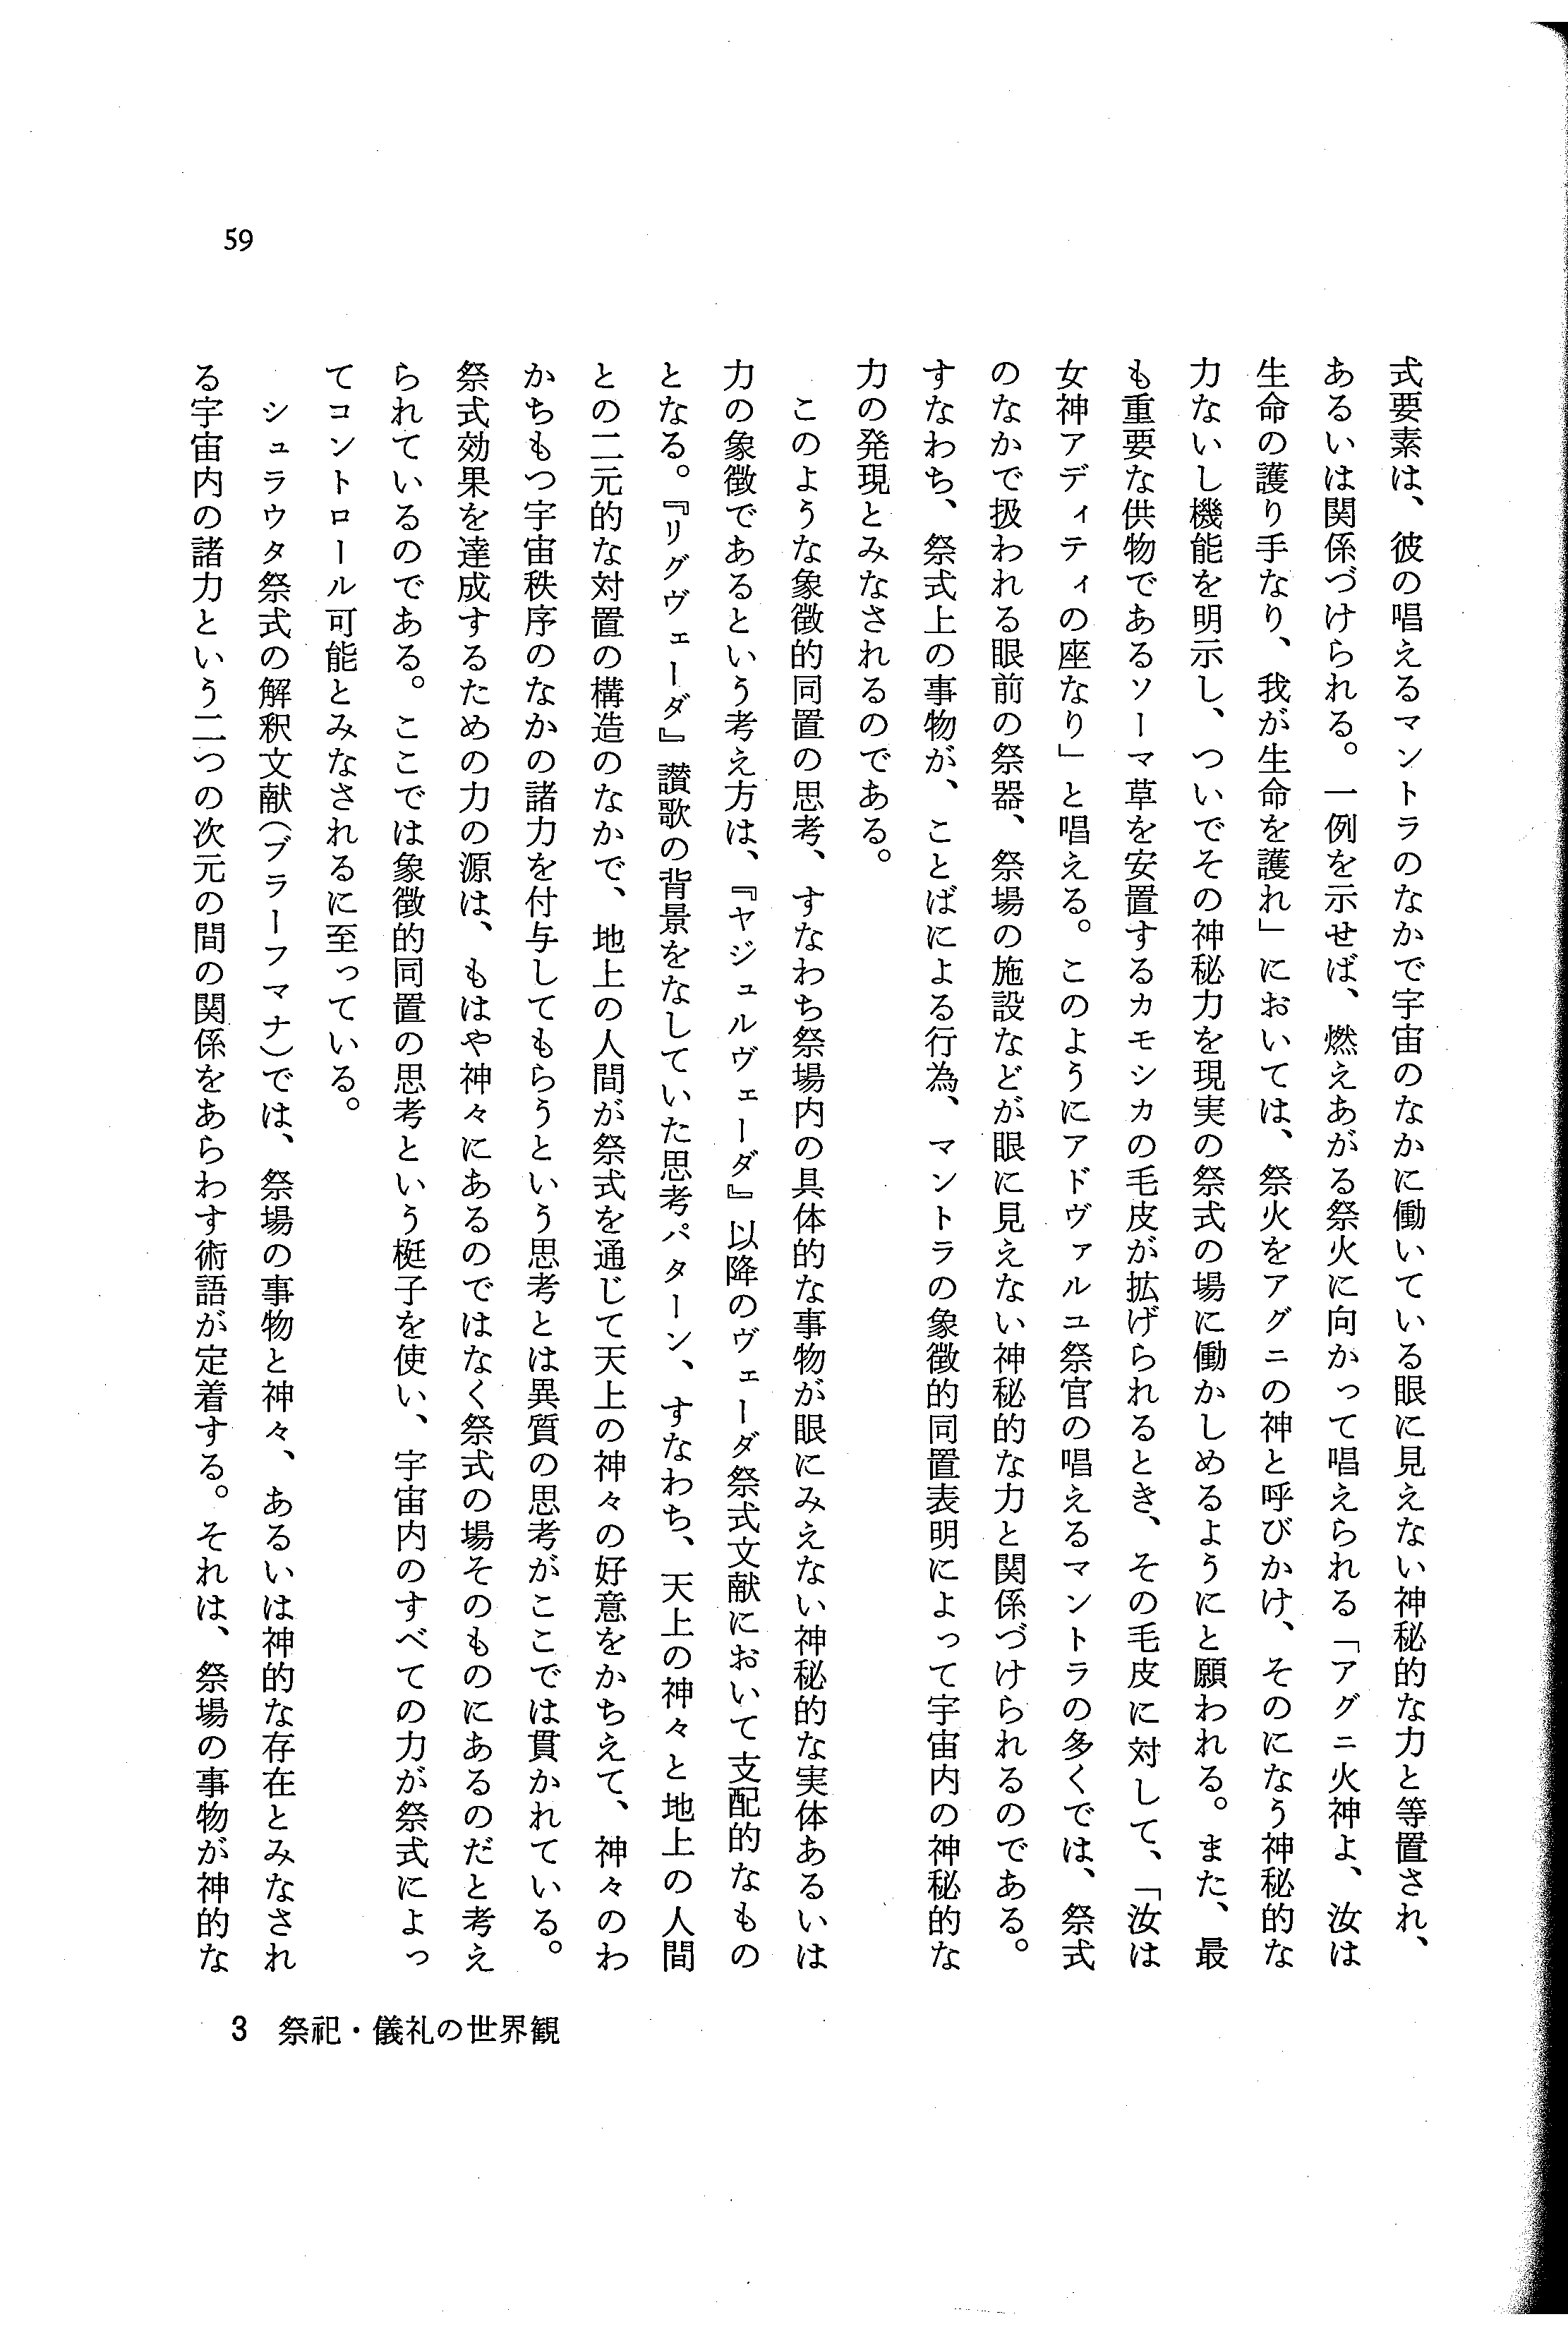 59
式要素は、彼の唱えるマントラのなかで宇宙のなかに働いている眼に見えない神秘的な力と等置され、
あるいは関係づけられる。一例を示せば、燃えあがる祭火に向かって唱えられる「アグニ火神よ、汝は
生命の護り手なり、我が生命を護れ」においては、祭火をアグニの神と呼びかけ、そのになう神秘的な
力ないし機能を明示し、ついでその神秘力を現実の祭式の場に働かしめるようにと願われる。また、最
も重要な供物であるソーマ草を安置するカモシカの毛皮が拡げられるとき、その毛皮に対して、「汝は
女神アディティの座なり」と唱える。このようにアドヴァルユ祭官の唱えるマントラの多くでは、祭式
のなかで扱われる眼前の祭器、祭場の施設などが眼に見えない神秘的な力と関係づけられるのである。
すなわち、祭式上の事物が、ことばによる行為、マントラの象徴的同置表明によって宇宙内の神秘的な
力の発現とみなされるのである。
このような象徴的同置の思考、すなわち祭場内の具体的な事物が眼にみえない神秘的な実体あるいは
力の象徴であるという考え方は、『ヤジュルヴェーダ』以降のヴェーダ祭式文献において支配的なもの
となる。『リグヴェーダ』讃歌の背景をなしていた思考パターン、すなわち、天上の神々と地上の人間
との二元的な対置の構造のなかで、地上の人間が祭式を通じて天上の神々の好意をかちえて、神々のわ
かちもつ宇宙秩序のなかの諸力を付与してもらうという思考とは異質の思考がここでは貫かれている。
祭式効果を達成するための力の源は、もはや神々にあるのではなく祭式の場そのものにあるのだと考え
られているのである。ここでは象徴的同置の思考という梃子を使い、宇宙内のすべての力が祭式によっ
てコントロール可能とみなされるに至っている。
シュラウタ祭式の解釈文献(ブラーフマナ)では、祭場の事物と神々、あるいは神的な存在とみなされ
る宇宙内の諸力という二つの次元の間の関係をあらわす術語が定着する。それは、祭場の事物が神的な
3 祭祀・儀礼の世界観